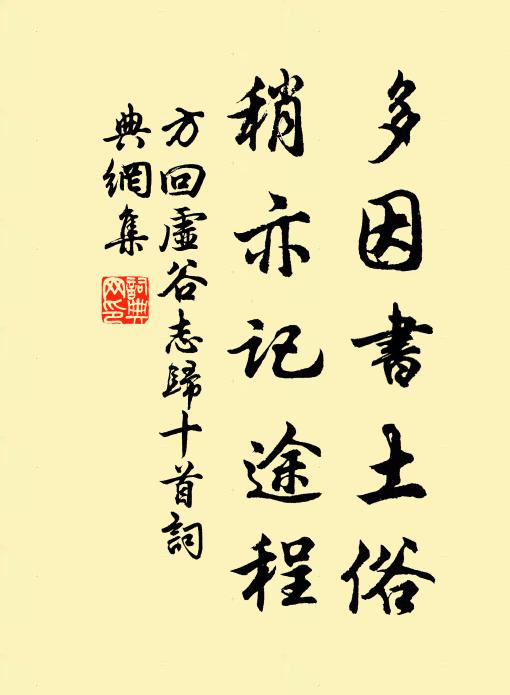 多因書土俗
稍亦記途程
方回虛谷志歸十首詞
典網集
詞典
网印